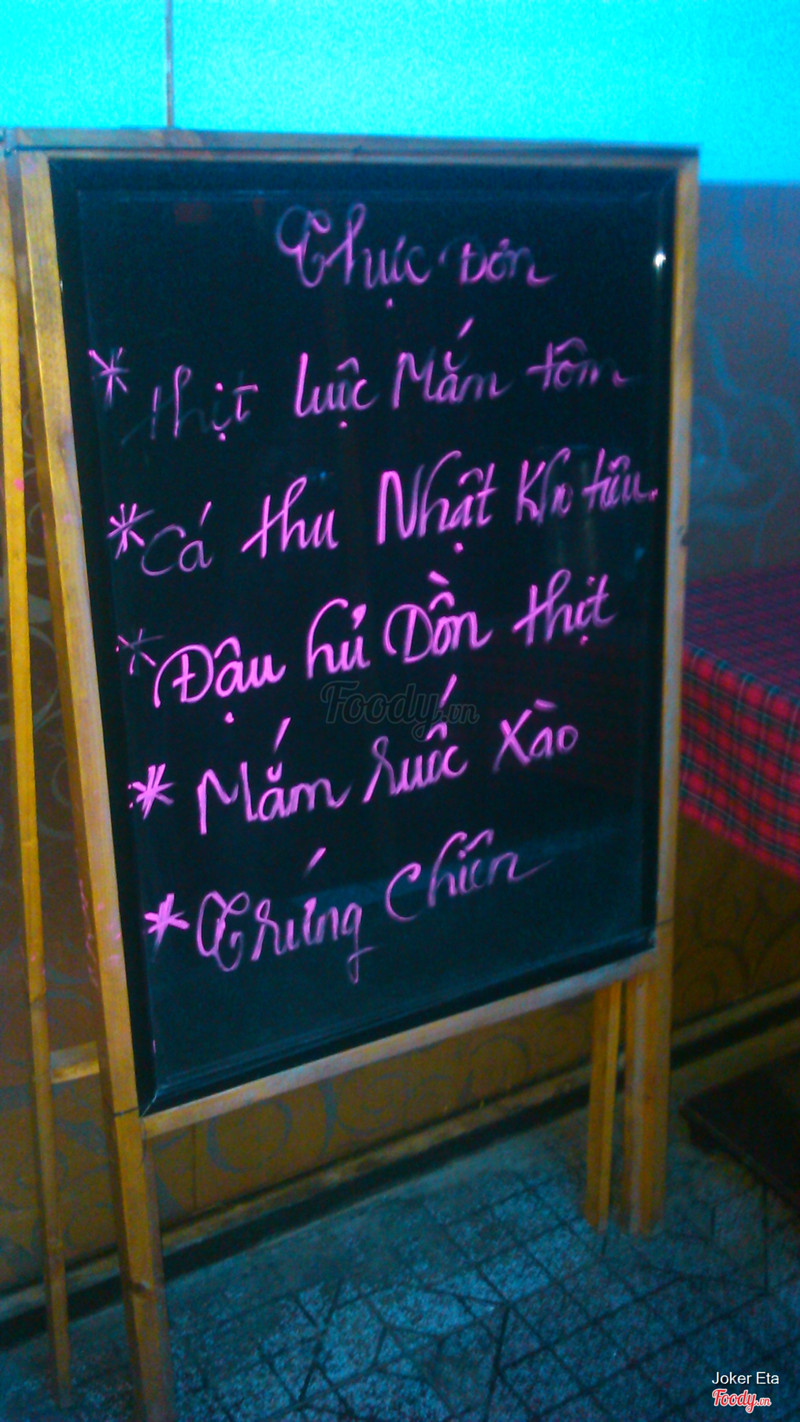 Thực Đơn
* Thịt luộc Mắm tôm
* Cá thu Nhật Kho tiêu.
* Đậu hủ Dồn thịt
* Mắm ruốc xào
* Trứng Chiên
Foody.vn
Joker Eta
Foody.vn